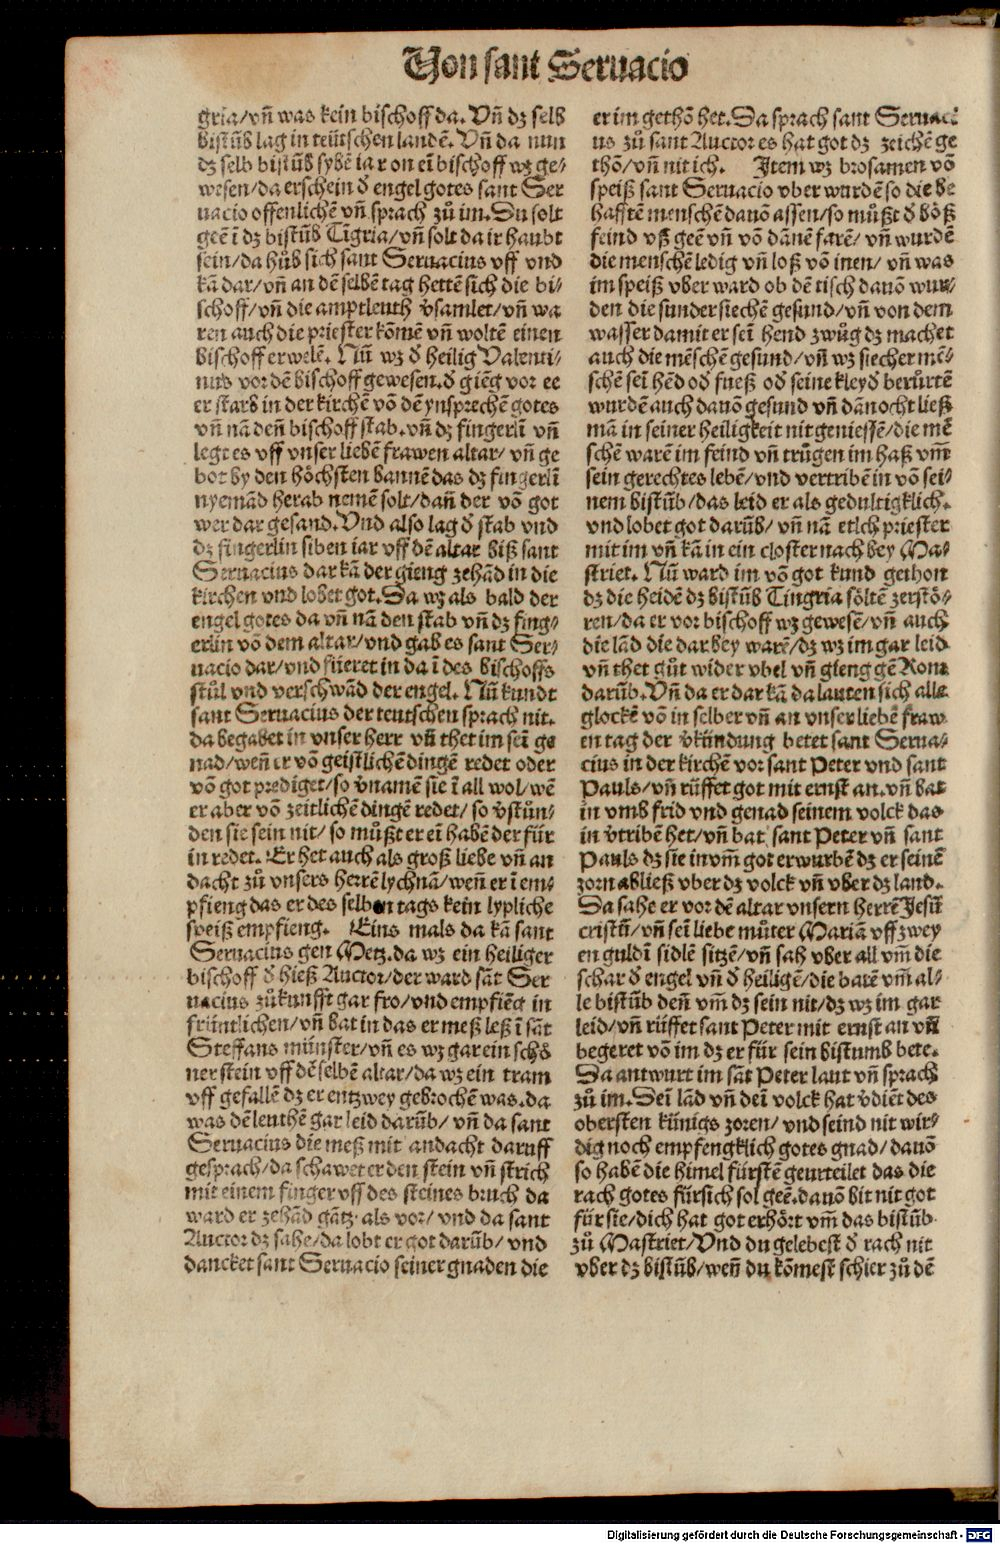 Von sant Seruacio
gria/vñ was kein bischoff da. Vñ dz selb
bistūb lag in teütschen landē. Vñ da nun
dz selb bistūb sybē iar on eī bischoff wz ge⸗
wesen/da erschein d̕ engel gotes sant Ser
uacio offenlichē vñ sprach zů im. Du solt
geē ī dz bistūb Tīgria/vñ solt da ir haubt
sein/da hůb sich sant Seruacius vff vnd
kā dar/vñ an dē selbē tag hettē sich die bi⸗
schoff/vñ die amptleuth v̕samlet/vñ wa
ren auch die priester kōmē vñ woltē einen
bischoff erwelē. Nū wz d̕ heilig Valenti⸗
nus vor dē bischoff gewesen. d̕ giēg vor ee
er starb in der kirchē vō dē ynsprechē gotes
vñ nā deñ bischoff stab. vñ dz fingerlī vñ
legt es vff vnser liebē frawen altar/ vñ ge
bot by den höchsten bannē das dz fingerlī
nyemād herab nemē solt/dañ der vō got
wer dar gesand. Vnd also lag d̕ stab vnd
dz fingerlin siben iar vff dē altar biß sant
Seruacius dar kā der gieng zehād in die
kirchen vnd lobet got. Da wz als bald der
engel gotes da vñ nā den stab vñ dz fing⸗
erlin vō dem altar/vnd gab es sant Ser⸗
uacio dar/vnd füeret in da ī des bischoffs
stůl vnd verschwād der engel. Nū kundt
sant Seruacius der teutschen sprach nit.
da begabet in vnser herr vñ thet im seī ge
nad/weñ er vō geistlichē dingē redet oder
vō got prediget/so v̕namē sie ī all wol/wē
er aber vō zeitlichē dingē redet/ so v̕stůn⸗
den sie sein nit/ so můßt er eī habē der für
in redet. Er het auch als groß liebe vñ an
dacht zů vnsers herrē lychnā/weñ er ī em⸗
pfieng das er des selben tags kein lypliche
speiß empfieng. Eins mals da kā sant
Seruacius gen Metz. da wz ein heiliger
bischoff d̕ hieß Auctor/der ward sāt Ser
uacius zůkunfft gar fro/vnd empfiēg in
früntlichen/vñ bat in das er meß leß ī sāt
Steffans münster/vñ es wz gar ein schö
ner stein vff dē selbē altar/da wz ein tram
vff gefallē dz er entzwey gebrochē was. da
was dē leuthē gar leid darūb/ vñ da sant
Seruacius die meß mit andacht daruff
gesprach/da schawet er den stein vñ strich
mit einem finger vff des steines bruch da
ward er zehād gātz als vor/ vnd da sant
Auctor dz sahe/da lobt er got darūb/ vnd
dancket sant Seruacio seiner gnaden die
er im gethō het. Da sprach sant Seruaci
us zů sant Auctor es hat got dz zeichē ge
thō/vñ nit ich. Item wz brosamen vō
speiß sant Seruacio vber wurdē so die be
hafftē menschē dauō assen/so můßt d̕ böß
feind vß geē vñ vō dānē farē/ vñ wurdē
die menschē ledig vñ loß vō inen/ vñ was
im speiß vber ward ob dē tisch dauō wur⸗
den die sundersiechē gesund/vñ von dem
wasser damit er seī hend zwůg dz machet
auch die mēschē gesund/vñ wz siecher mē⸗
schē seī hēd od̕ fueß od̕ seine kleyd̕ berůrtē
wurdē auch dauō gesund vñ dānocht ließ
mā in seiner heiligkeit nit geniessē/die mē
schē warē im feind vñ trůgen im haß vm̄
sein gerechtes lebē/vnd vertribē in vō sei⸗
nem bistūb/das leid er als gedultigklich.
vnd lobet got darūb/ vñ nā etlch priester
mit im vñ kā in ein closter nach bey Ma⸗
striet. Nū ward im vō got kund gethon
dz die heidē dz bistūb Tingria söltē zerstö⸗
ren/da er vor bischoff wz gewesē/vñ auch
die lād die dar bey warē/dz wz im gar leid
vñ thet gůt wider vbel vñ gieng gē Rom
darūb. Vñ da er dar kā da lauten sich alle
glockē vō in selber vñ an vnser liebē fraw
en tag der v̕kündung betet sant Serua⸗
cius in der kirchē vor sant Peter vnd sant
Pauls/vñ růffet got mit ernst an. vñ bat
in vmb frid vnd genad seinem volck das
in v̕tribē het/vñ bat sant Peter vñ sant
Pauls dz sie in vm̄ got erwurbē dz er seinē
zorn abließ vber dz volck vñ vber dz land.
Da sahe er vor dē altar vnsern herrē Jesū
cristū/vñ seī liebe můter Mariā vff zwey
en guldī sidlē sitzē/vñ sah vber all vm̄ die
schar d̕ engel vñ d̕ heiligē/die batē vm̄ al⸗
le bistūb deñ vm̄ dz sein nit/dz wz im gar
leid/vñ růffet sant Peter mit ernst an vñ
begeret vō im dz er für sein bistumb bete.
Da antwurt im sāt Peter laut vñ sprach
zů im. Seī lād vñ deī volck hat v̕diēt des
obersten künigs zoren/ vnd seind nit wir⸗
dig noch empfengklich gotes gnad/dauō
so habē die himel fürstē geurteilet das die
rach gotes fürsich sol geē. dauō bit nit got
für sie/dich hat got erhört vm̄ das bistūb
zů Mastriet/Vnd du gelebest d̕ rach nit
vber dz bistūb/weñ du kōmest schier zů dē
Digitalisierung gefördert durch die Deutsche Forschungsgemeinschaft - DFG